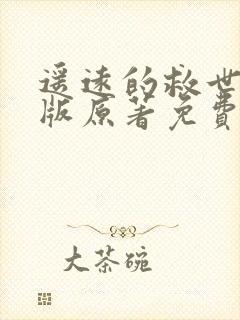 遥远的救世
版原著免費
大茶碗